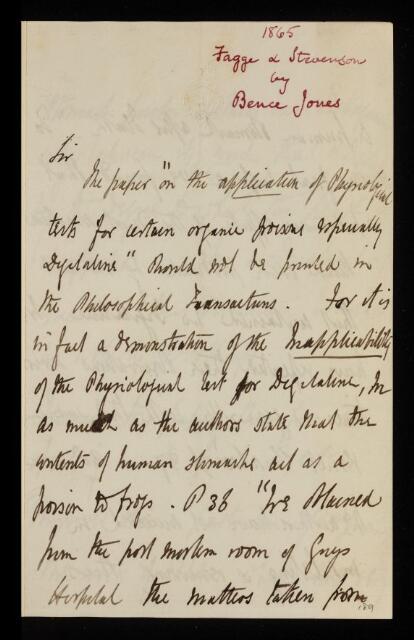 1865
Fagge & Stevenson
by
Bence Jones
Sir
The paper "on the application of Physiological
tests for certain organic poisons especially
Digitaline" should not be printed in
the Philosophical Transactions. For it is
in fact a demonstration of the Inapplicability
of the Physiological test for Digitaline, in
as much as the authors state that the
contents of human stomachs act as a
poison to frogs. P 38 "We obtained
from the post mortem room of Guys
Hospital the matters taken from
189